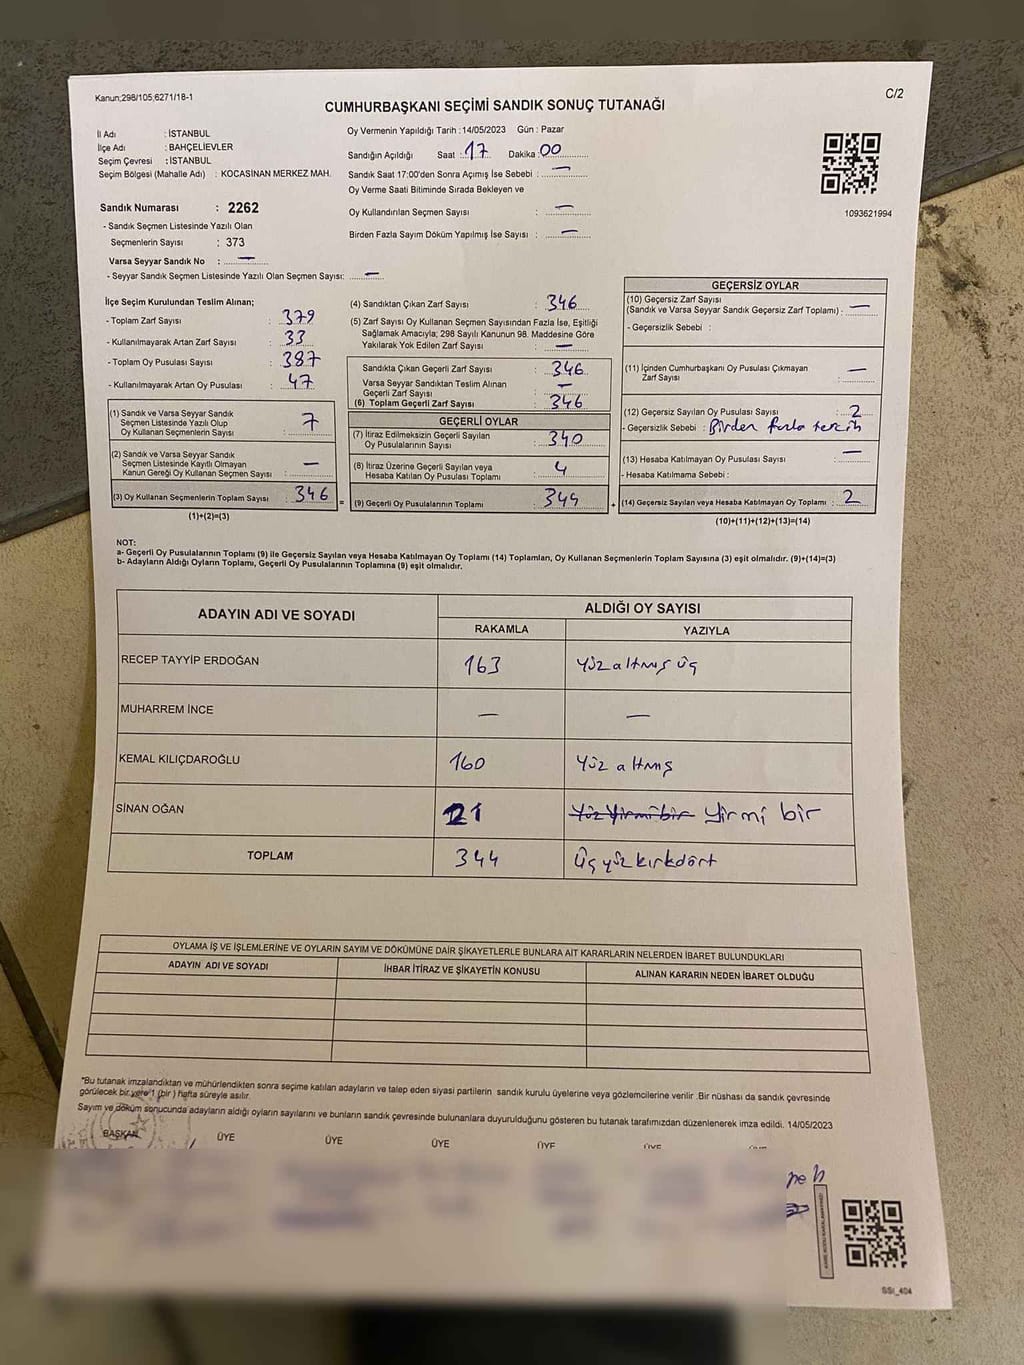 Kanun;298/105,6271/18-1
C/2
CUMHURBAŞKANI SEÇİMİ SANDIK SONUÇ TUTANAĞI
İl Adı : İSTANBUL
İlçe Adı : BAHÇELİEVLER
Seçim Çevresi : İSTANBUL
Seçim Bölgesi (Mahalle Adı) : KOCASİNAN MERKEZ MAH.
Sandık Numarası : 2262
- Sandık Seçmen Listesinde Yazılı Olan
Seçmenlerin Sayısı : 373
Varsa Seyyar Sandık No : —
- Seyyar Sandık Seçmen Listesinde Yazılı Olan Seçmen Sayısı: —
Oy Vermenin Yapıldığı Tarih : 14/05/2023 Gün : Pazar
Sandığın Açıldığı Saat : 17 Dakika : 00
Sandık Saat 17:00'den Sonra Açımış İse Sebebi : —
Oy Verme Saati Bitiminde Sırada Bekleyen ve
Oy Kullandırılan Seçmen Sayısı : —
Birden Fazla Sayım Döküm Yapılmış İse Sayısı : —
1093621994
İlçe Seçim Kurulundan Teslim Alınan;
- Toplam Zarf Sayısı : 379
- Kullanılmayarak Artan Zarf Sayısı : 33
- Toplam Oy Pusulası Sayısı : 387
- Kullanılmayarak Artan Oy Pusulası : 47
(1) Sandık ve Varsa Seyyar Sandık
Seçmen Listesinde Yazılı Olup
Oy Kullanan Seçmenlerin Sayısı : 7
(2) Sandık ve Varsa Seyyar Sandık
Seçmen Listesinde Kayıtlı Olmayan
Kanun Gereği Oy Kullanan Seçmen Sayısı : —
(3) Oy Kullanan Seçmenlerin Toplam Sayısı : 346
(1)+(2)=(3)
(4) Sandıktan Çıkan Zarf Sayısı : 346
(5) Zarf Sayısı Oy Kullanan Seçmen Sayısından Fazla İse, Eşitliği
Sağlamak Amacıyla; 298 Sayılı Kanunun 98. Maddesine Göre
Yakılarak Yok Edilen Zarf Sayısı : —
Sandıkta Çıkan Geçerli Zarf Sayısı : 346
Varsa Seyyar Sandıktan Teslim Alınan
Geçerli Zarf Sayısı : —
(6) Toplam Geçerli Zarf Sayısı : 346
GEÇERLİ OYLAR
(7) İtiraz Edilmeksizin Geçerli Sayılan
Oy Pusulalarının Sayısı : 340
(8) İtiraz Üzerine Geçerli Sayılan veya
Hesaba Katılan Oy Pusulası Toplamı : 4
= (9) Geçerli Oy Pusulalarının Toplamı : 344
GEÇERSİZ OYLAR
(10) Geçersiz Zarf Sayısı
(Sandık ve Varsa Seyyar Sandık Geçersiz Zarf Toplamı) : —
- Geçersizlik Sebebi :
(11) İçinden Cumhurbaşkanı Oy Pusulası Çıkmayan
Zarf Sayısı : —
(12) Geçersiz Sayılan Oy Pusulası Sayısı : 2
- Geçersizlik Sebebi : Birden fazla tercih
(13) Hesaba Katılmayan Oy Pusulası Sayısı : —
- Hesaba Katılmama Sebebi :
+ (14) Geçersiz Sayılan veya Hesaba Katılmayan Oy Toplamı : 2
(10)+(11)+(12)+(13)=(14)
NOT:
a- Geçerli Oy Pusulalarının Toplamı (9) ile Geçersiz Sayılan veya Hesaba Katılmayan Oy Toplamı (14) Toplamları, Oy Kullanan Seçmenlerin Toplam Sayısına (3) eşit olmalıdır. (9)+(14)=(3)
b- Adayların Aldığı Oyların Toplamı, Geçerli Oy Pusulalarının Toplamına (9) eşit olmalıdır.
ADAYIN ADI VE SOYADI ALDIĞI OY SAYISI
RAKAMLA YAZIYLA
RECEP TAYYİP ERDOĞAN 163 Yüz altmış üç
MUHARREM İNCE — —
KEMAL KILIÇDAROĞLU 160 Yüz altmış
SİNAN OĞAN 21 Yüz yirmi bir Yirmi bir
TOPLAM 344 Üç yüz kırkdört
OYLAMA İŞ VE İŞLEMLERİNE VE OYLARIN SAYIM VE DÖKÜMÜNE DAİR ŞİKAYETLERLE BUNLARA AİT KARARLARIN NELERDEN İBARET BULUNDUKLARI
ADAYIN ADI VE SOYADI İHBAR İTİRAZ VE ŞİKAYETİN KONUSU ALINAN KARARIN NEDEN İBARET OLDUĞU
"Bu tutanak imzalandıktan ve mühürlendikten sonra seçime katılan adayların ve talep eden siyasi partilerin sandık kurulu üyelerine veya gözlemcilerine verilir .Bir nüshası da sandık çevresinde
görülecek bir yere 1 (bir ) hafta süreyle asılır.
Sayım ve döküm sonucunda adayların aldığı oyların sayılarını ve bunların sandık çevresinde bulunanlara duyurulduğunu gösteren bu tutanak tarafımızdan düzenlenerek imza edildi. 14/05/2023
BAŞKAN ÜYE ÜYE ÜYE ÜYE ÜYE ÜYE
SSI_404